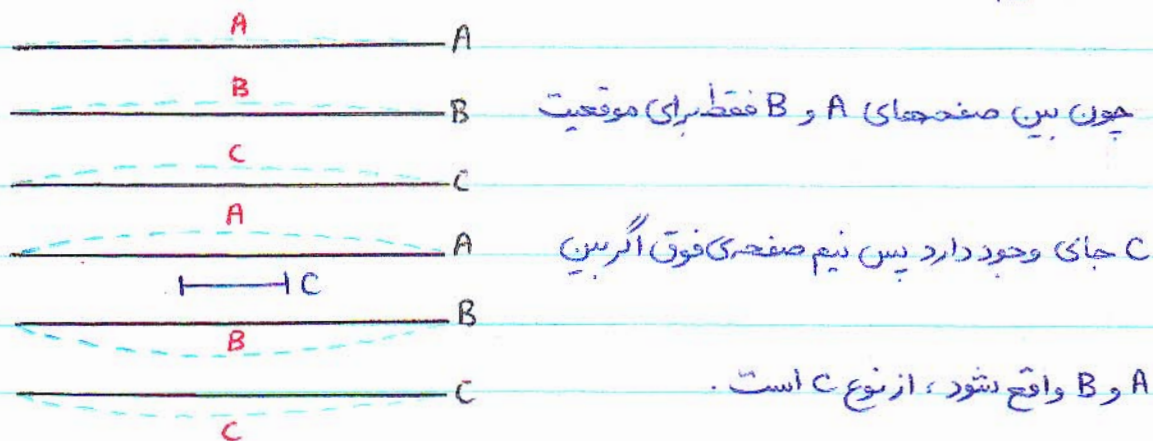 A
A
B
B
چون بین صفحه‌های A و B فقط برای موقعیت
C
C
A
A
C جای وجود دارد پس نیم صفحه‌ی فوق اگر بین
C
B
B
A و B واقع شود، از نوع C است.
C
C